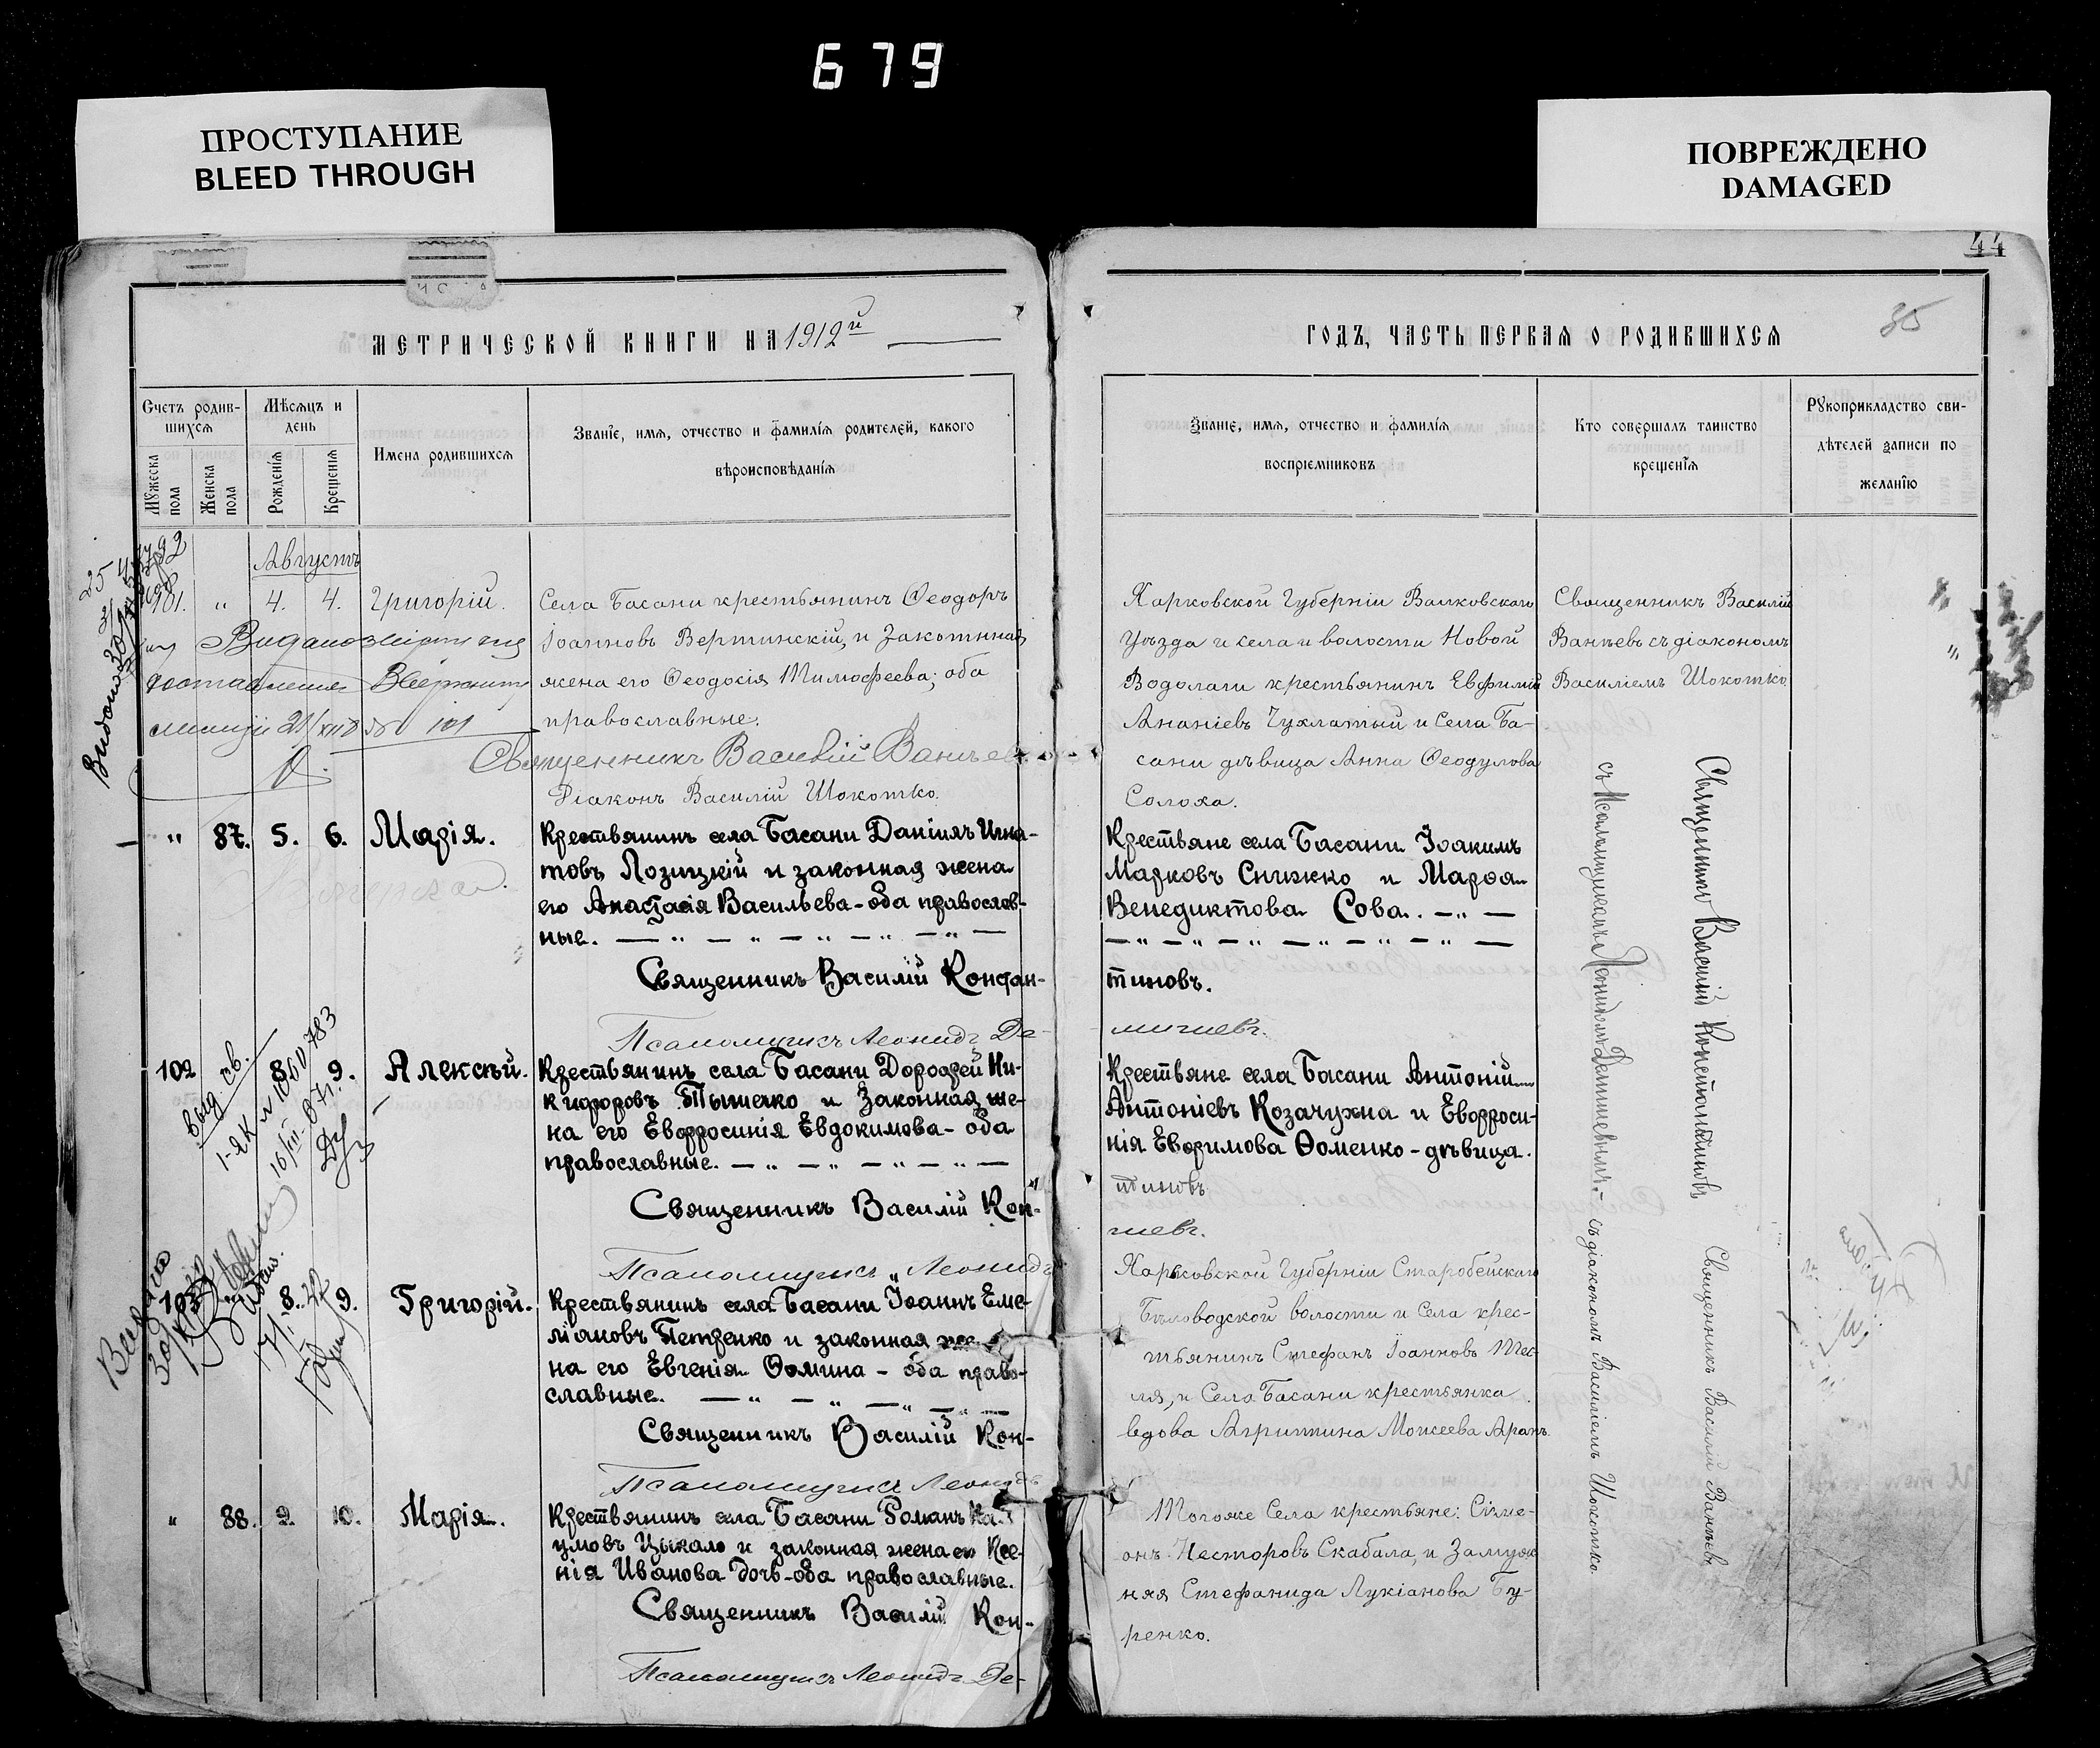 679
ПРОСТУПАНИЕ
BLEED THROUGH
ПОВРЕЖДЕНО
DAMAGED
44
35
МЕТРИЧЕСКОЙ КНИГИ НА 1912й
ГОДЪ, ЧАСТЬ ПЕРВАЯ О РОДИВШИХСЯ
Счетъ родив-
шихся
Мужеска пола
Женска пола
Мѣсяцъ и
день
Рожденія
Крещенія
Имена родившихся
Званіе, имя, отчество и фамилія родителей, какого
вѣроисповѣданія
Званіе, имя, отчество и фамилія
воспріемниковъ
Кто совершалъ таинство
крещенія
Рукоприкладство сви-
дѣтелей записи по
желанію
Августъ
101. " 4. 4. Григорій.
Села Басани крестьянинъ Ѳеодоръ
Іоанновъ Вертинскій, и законная
жена его Ѳеодосія Тимофеева; оба
православные.
Священникъ Василій Ванѣевъ
Діаконъ Василій Шокотко.
Харковской Губерніи Валковскаго
уѣзда и села и волости Новой
Водолаги крестьянинъ Евфимій
Ананіевъ Чухлатый и села Ба-
сани дѣвица Анна Ѳеодулова
Солоха.
Священникъ Василій
Ванѣевъ съ діакономъ
Василіемъ Шокотко.
" 87. 5. 6. Марія.
Крестьянинъ села Басани Даніилъ Игна-
товъ Лозицкій и законная жена
его Анастасія Васильева - оба православ-
ные.
Священникъ Василій Констан-
тиновъ.
Псаломщикъ Леонидъ Де-
мишевъ.
Крестьяне села Басани Іоакимъ
Марковъ Снижко и Марѳа
Венедиктова Сова.
102 8. 9. Алексѣй.
Крестьянинъ села Басани Дороѳей Ни-
кифоровъ Тышечко и законная же-
на его Евфросинія Евдокимова - оба
православные.
Священникъ Василій Кон-
тиновъ
Псаломщикъ Леонидъ
шевъ.
Крестьяне села Басани Антоній
Антоніевъ Козачухна и Евфроси-
нія Евфимова Ѳоменко - дѣвица.
103 8. 9. Григорій.
Крестьянинъ села Басани Іоаннъ Еме-
ліановъ Петренко и законная же-
на его Евгенія Ѳомина - оба право-
славные.
Священникъ Василій Кон-
Псаломщикъ Леонидъ
Харьковской Губерніи Старобейскаго
Бѣловодской волости и села крес-
тьянинъ Стефанъ Іоанновъ Тес-
ля, и Села Басани крестьянка
вдова Агриппина Моисеева Арапъ.
" 88. 9. 10. Марія.
Крестьянинъ села Басани Романъ На-
умовъ Цыкало и законная жена его Ксе-
нія Иванова дочь - оба православные.
Священникъ Василій Кон-
Псаломщикъ Леонидъ Де-
Тогоже Села крестьяне: Сіме-
онъ Несторовъ Скабала, и замуж
няя Стефанида Лукіанова Бу-
ренко.
Священникъ Василій Константиновъ
съ Псаломщикомъ Леонидомъ Демишевымъ.
Священникъ Василій Ванѣевъ
съ діакономъ Василіемъ Шокотко.